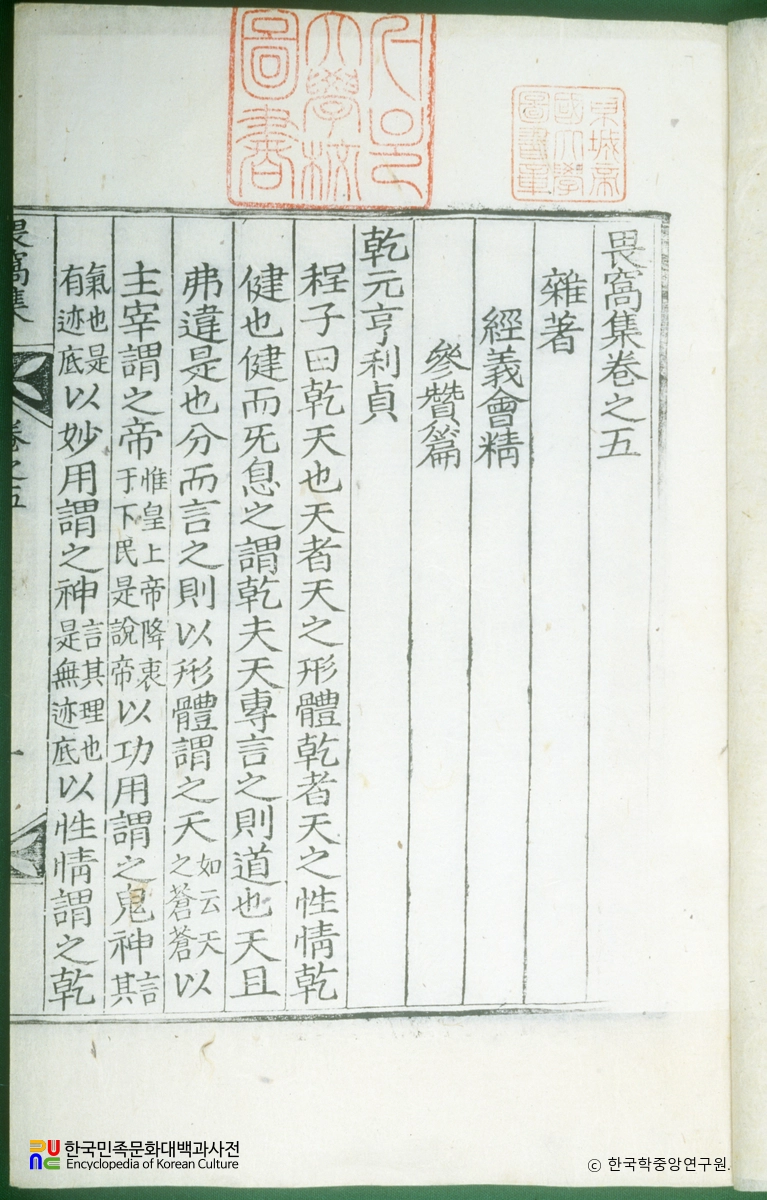 畏窩集卷之五
雜著
經義會精
參贊篇
乾元亨利貞
程子曰乾天也天者天之形體乾者天之性情乾
健也健而无息之謂乾夫天專言之則道也天且
弗違是也分而言之則以形體謂之天如云天之蒼蒼以
主宰謂之帝惟皇上帝降衷于下民是說帝以功用謂之鬼神言其
氣也是有迹底以妙用謂之神言其理也是無迹底以性情謂之乾
畏窩集
卷之五
一
圖書
大學校
東城帝
國大學
圖書章
한국민족문화대백과사전
Encyclopedia of Korean Culture
ⓒ 한국학중앙연구원.